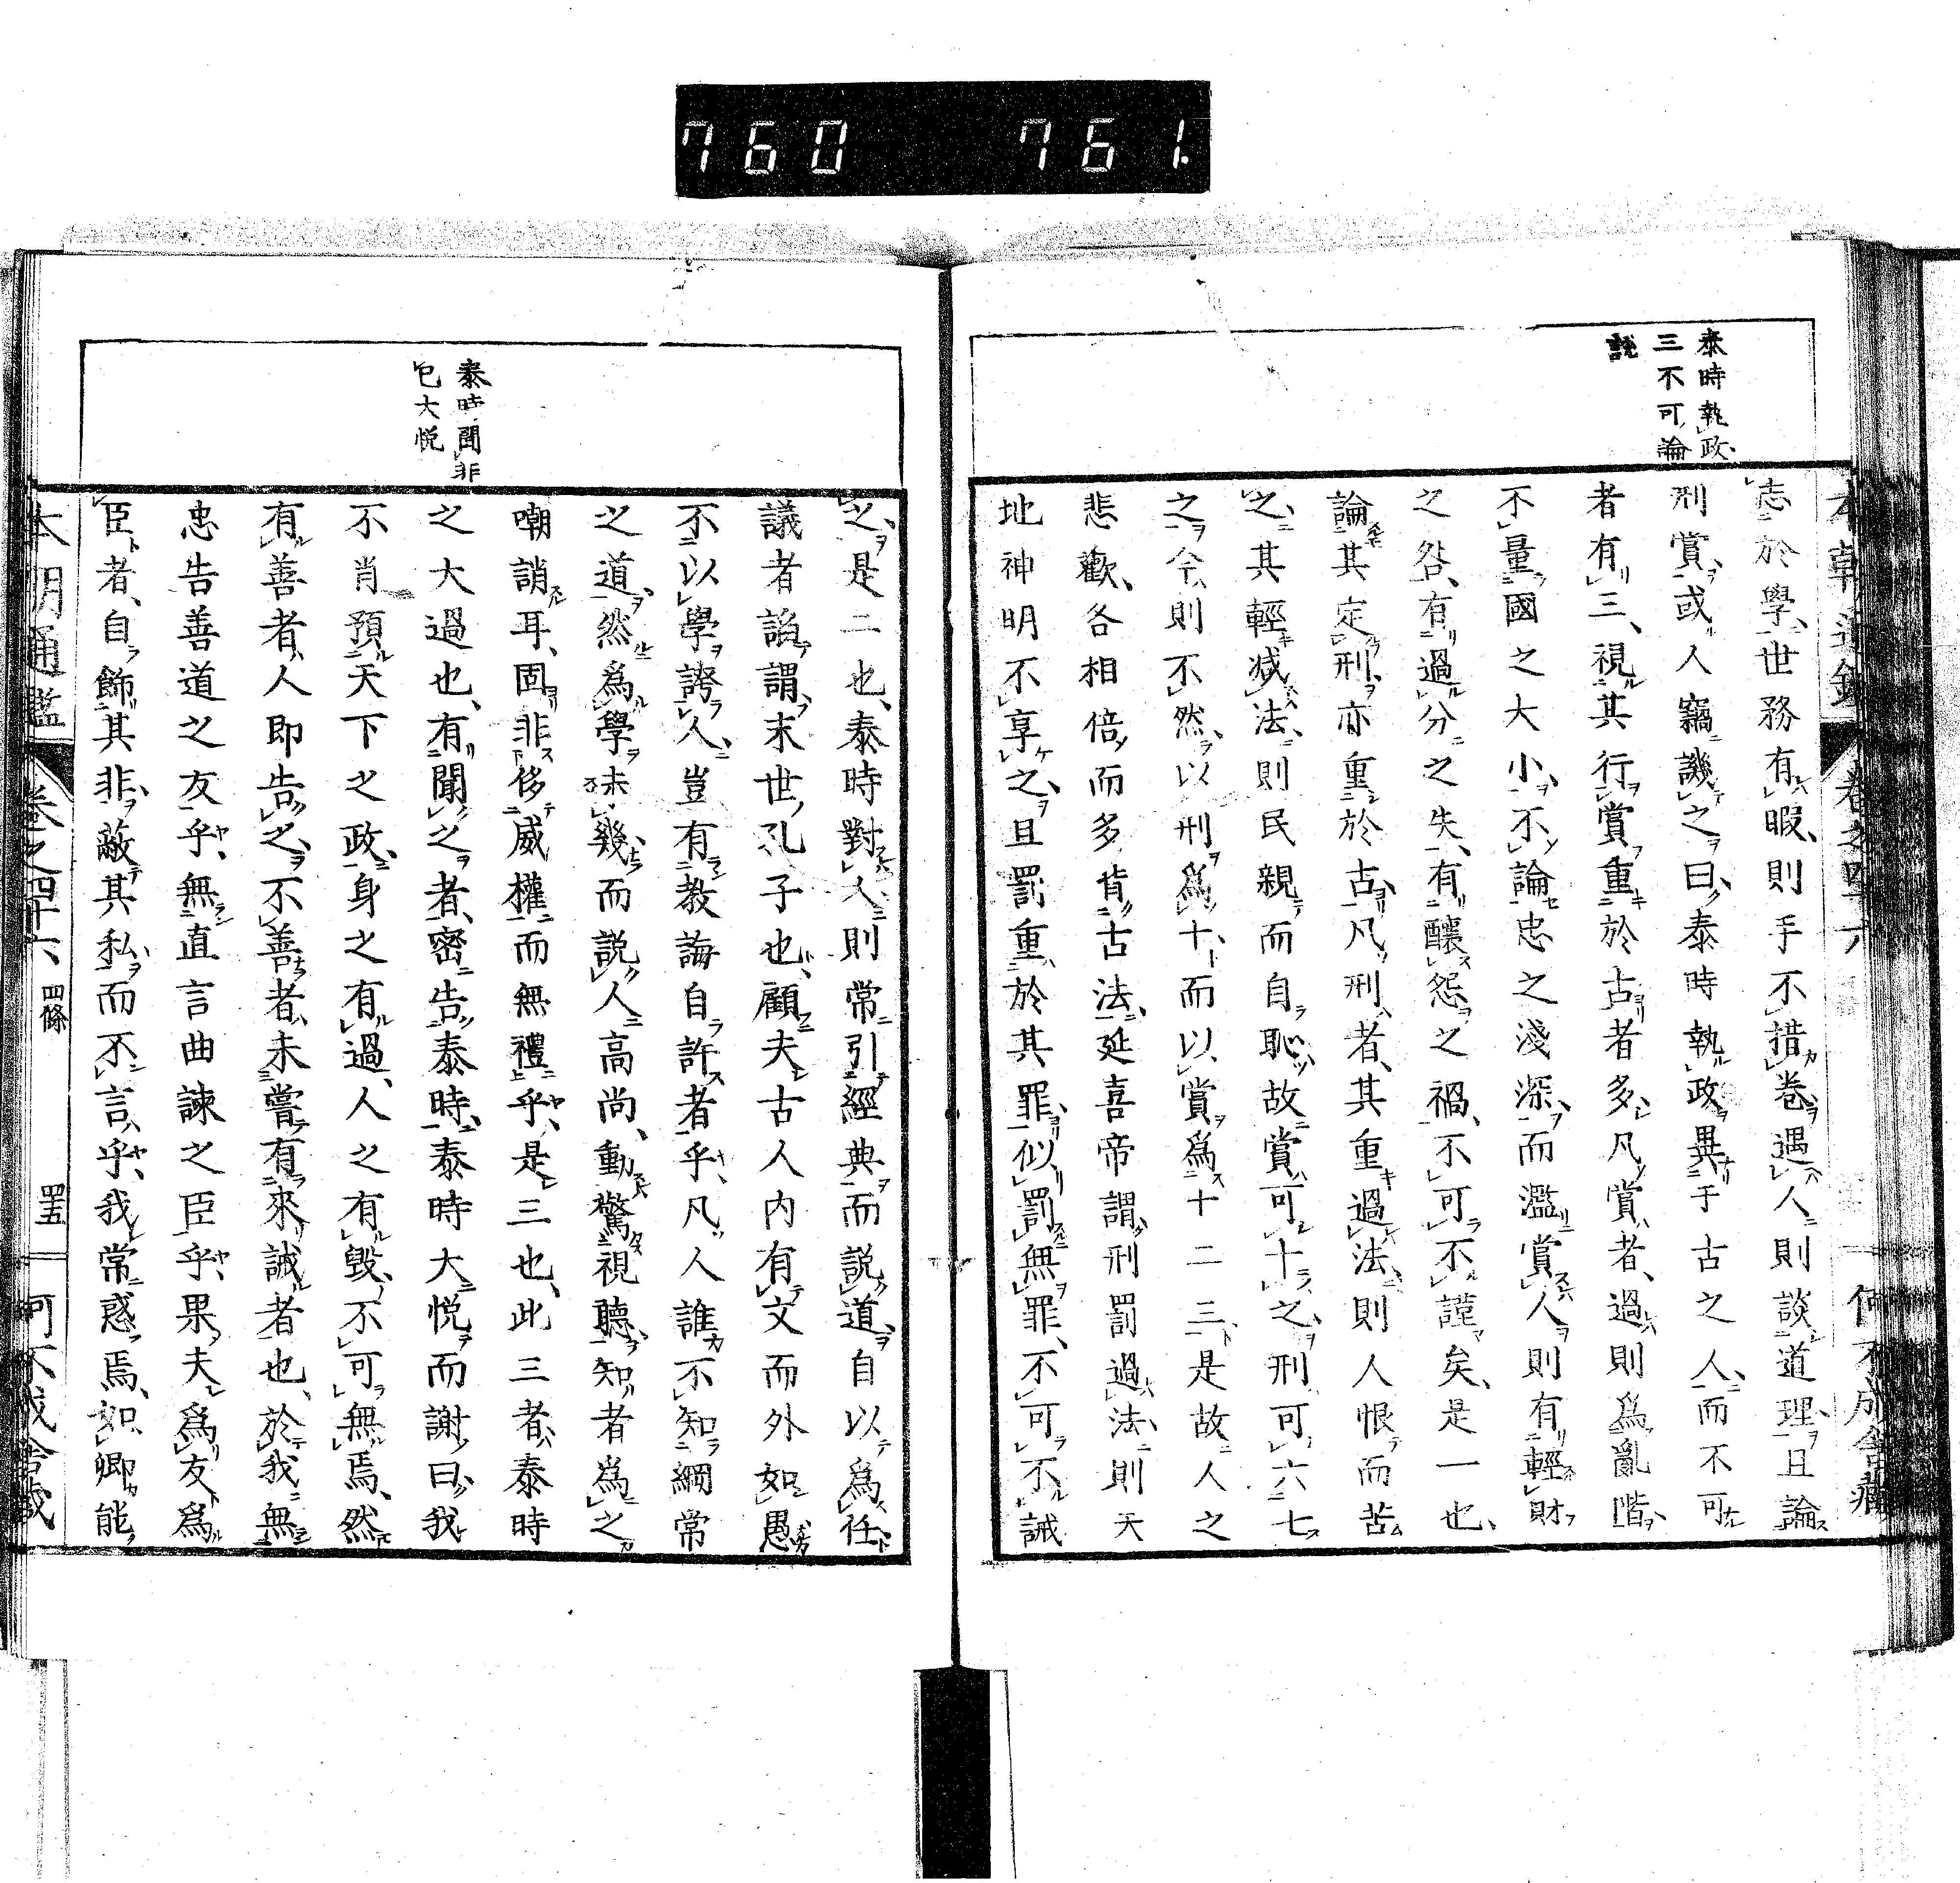 760 761
泰時執政
三不可論
說
志於學世務有暇則手不措卷遇人則談道理且論
刑賞或人竊譏之曰泰時執政異于古之人而不可
者有三視其行賞重於古者多凡賞者過則爲亂階
不量國之大小不論忠之淺深而濫賞人則有輕財
之咎有過分之失有釀怨之禍不可不謹矣是一也
論其定刑亦重於古凡刑者其重過法則人恨而苦
之其輕減法則民親而自恥故賞可十之刑可六七
之今則不然以刑爲十而以賞爲十二三是故人之
悲歡各相倍而多背古法延喜帝謂刑罰過法則天
地神明不享之且罰重於其罪似罰無罪不可不誡
泰時聞非
己大悅
之是二也泰時對人則常引經典而說道自以爲任
議者諂謂末世孔子也顧夫古人内有文而外如愚
不以學誇人豈有教誨自許者乎凡人誰不知綱常
之道然爲學未幾而說人高尚動驚視聽知者爲之
嘲誚耳固非侈威權而無禮乎是三也此三者泰時
之大過也有聞之者密告泰時泰時大悅而謝曰我
不肖預天下之政身之有過人之有毀不可無焉然
有善者人即告之不善者未嘗有來誡者也於我無
忠告善道之友乎無直言曲諫之臣乎果夫爲友爲
臣者自飾其非蔽其私而不言乎我常惑焉如卿能
本朝通鑑 卷之四十六 四條 四十五